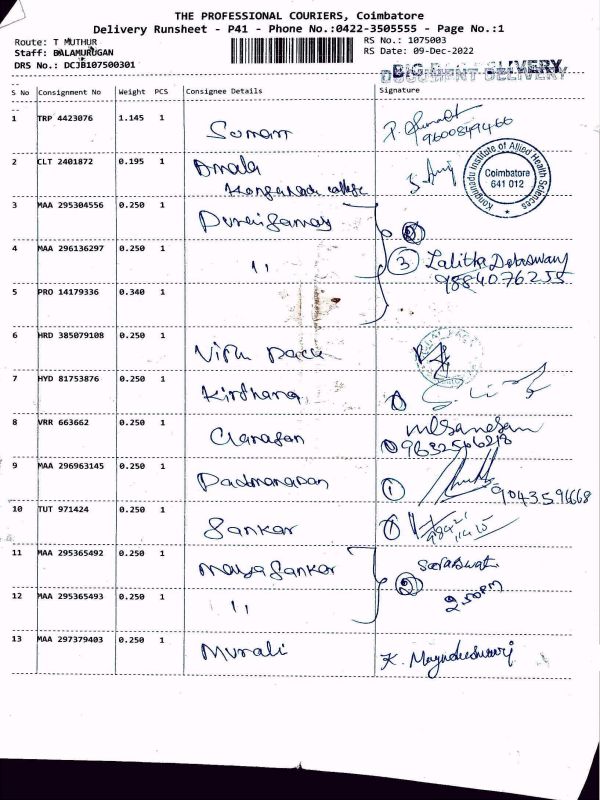 THE PROFESSIONAL COURIERS, Coimbatore
Delivery Runsheet - P41 - Phone No.:0422-3505555 - Page No.:1
Route: T MUTHUR
RS No.: 1075003
Staff: BALAMURUGAN
RS Date: 09-Dec-2022
DRS No.: DCJB107500301
DOCUMENT DELIVERY
S No Consignment No Weight PCS Consignee Details Signature
1 TRP 4423076 1.145 1 Suman
9600849466
2 CLT 2401872 0.195 1 Amala
Konganadu college
Kongunadu Institute of Allied Health Sciences
Coimbatore
641 012
3 MAA 295304556 0.250 1 Duraisamy
4 MAA 296136297 0.250 1 ,, 3 Lalitha
9884076255
5 PRO 14179336 0.340 1
6 HRD 385079108 0.250 1
7 HYD 81753876 0.250 1 Kirthana 1
8 VRR 663662 0.250 1 Ganesan
9 MAA 296963145 0.250 1 Padmanaban 1
10 TUT 971424 0.250 1 Sankar 1
11 MAA 295365492 0.250 1 Mayasankar
2
12 MAA 295365493 0.250 1 ,, 2.50pm
13 MAA 297379403 0.250 1 Murali K.